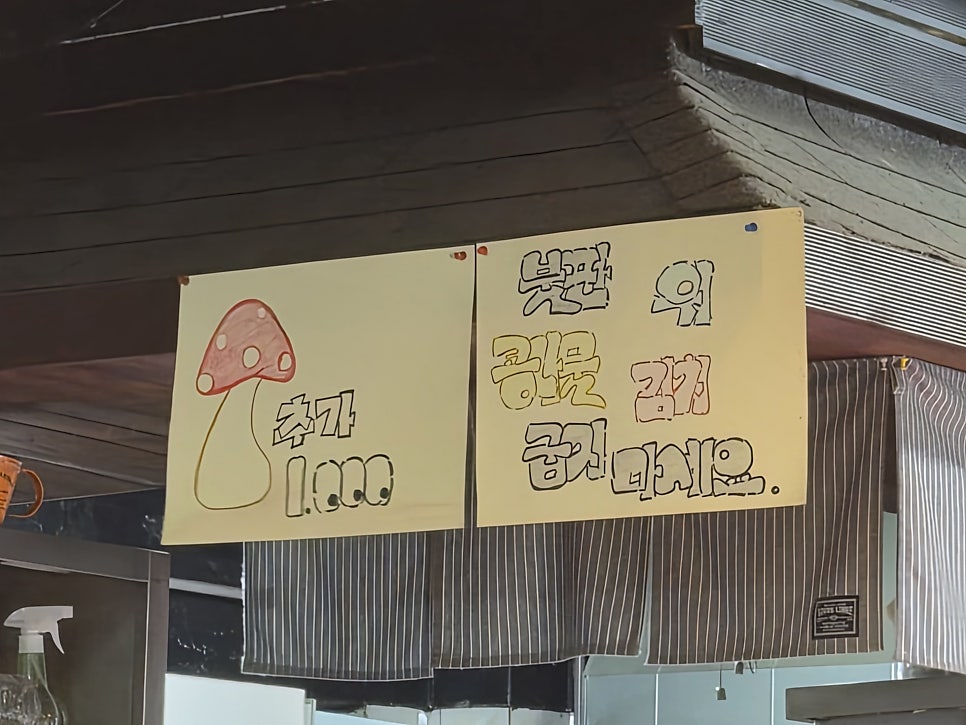 추가
1.000
불판 위
콩나물 김치
굽지 마세요.